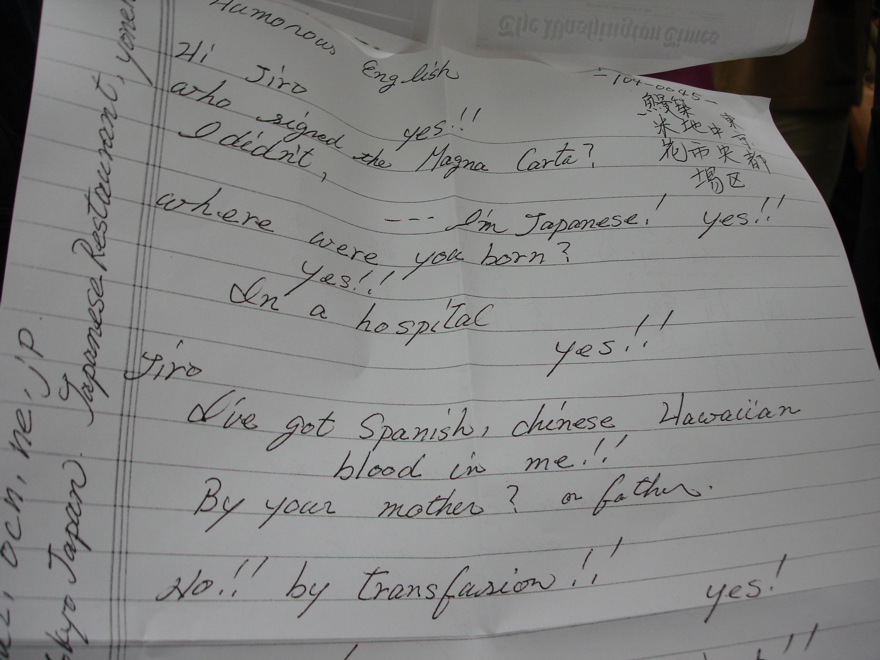 The Washington Times
Humorous English
-104-0045-
東京都
中央区
築地市場
米花
Hi Jiro yes!!
who signed the Magna Carta?
I didn't,
--- I'm Japanese! yes!!
where were you born?
yes!!
In a hospital
yes!!
Jiro
I've got Spanish, chinese Hawaiian
blood in me!!
By your mother? or father.
No!! by transfusion!!
yes!
Japan. Japanese Restaurant,
ocn, ne, jp.